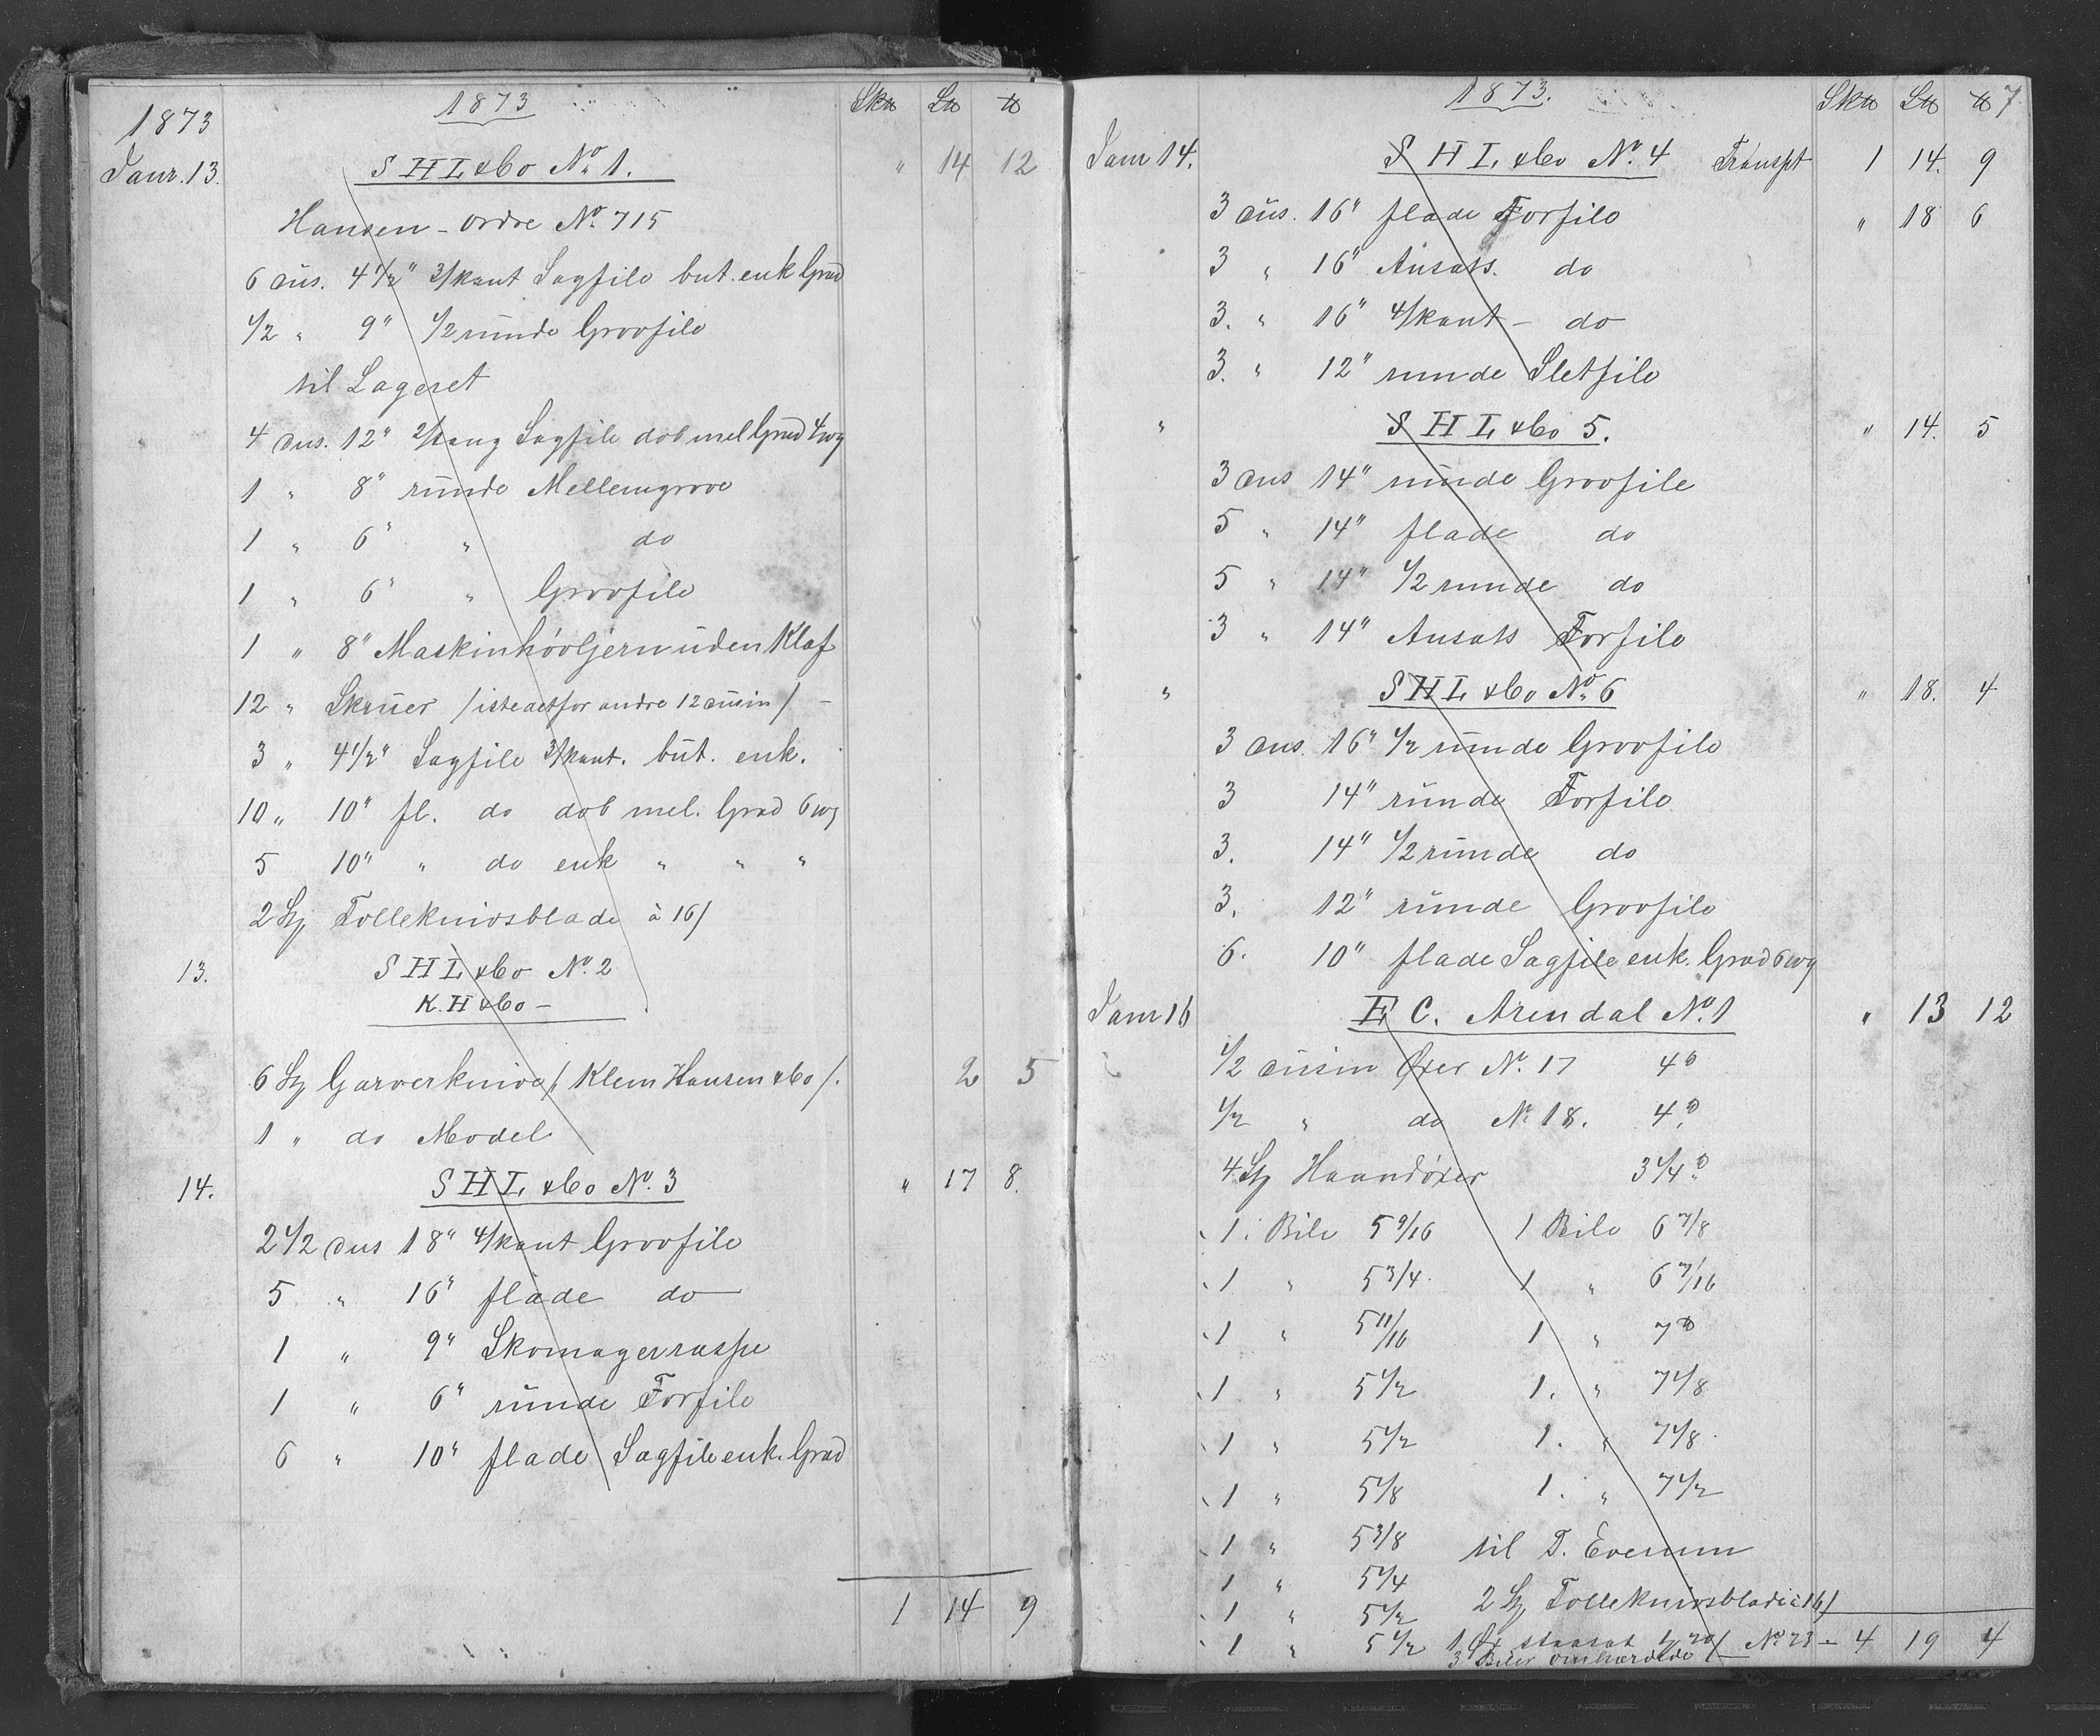 1873 1873 Sk℔ L℔ ℔
Janr. 13. S H L & Co No 1. " 14 12
Hansen - Ordre No. 715
6 dus. 4 1/2" 3/kant Sagfile but. enk Grad
1/2 " 9" 1/2 runde Grovfile
til Lageret
4 dus. 12" Sagfile dob mel Grad
1 " 8" runde Mellemgrove
1 " 6" " do
1 " 6" " Grovfile
1 " 8" Maskinhövljern uden Klaf
12 " Skruer / istedetfor andre 12 dusin / -
3 " 4 1/2" Sagfile 3/kant. but. enk.
10 " 10" fl. do dob mel. Grad 6 wg
5 10" " do enk " " "
2 Stz Tolleknivsblade à 16/
13. S H L & Co No. 2
K. H & Co -
6 Stz Garverknive /: Klem Hansen & Co /. 2 5
1 " do Model
14. S H L & Co No. 3 " 17 8.
2 1/2 dus 18" 4/kant Grovfile
5 " 16" flade do
1 " 9" Skomagerraspe
1 " 6" runde Forfile
6 " 10" flade Sagfile enk. Grad
1 14 9
1873. Sk℔ L℔ ℔ 7
Janr 14. S H L & Co No. 4 Transpt 1 14. 9
3 dus. 16" flade Forfile " 18 6
3 " 16" Ansats. do
3. " 16" 4/kant - do
3. " 12" runde Sletfile
" S H L & Co 5. " 14. 5
3 dus 14" runde Grovfile
5 " 14" flade do
5 " 14" 1/2 runde do
3 " 14" Ansats Forfile
" S H L & Co No. 6 " 18. 4
3 dus. 16" 1/2 runde Grovfile
3 14" runde Forfile
3. 14" 1/2 runde do
3. 12" runde Grovfile
6. 10" flade Sagfile enk. Grad 6 wg
Janr 16 E. C. Arendal No. 1 " 13 12
1/2 dusin Öxer No. 17 4 ℔
1/2 " do No 18. 4 ℔
4 Stz Haandöxer 3 1/4 ℔
1. Bile 5 9/16 1 Bile 6 7/8
1 " 5 3/4. 1 " 6 7/16
1 " 5 11/16 1 " 7 ℔
1 " 5 1/2 1. " 7 1/8
1 " 5 1/2 1. " 7 1/8.
1 " 5 1/8 1. " 7 1/2
1 " 5 3/8 til T. Evensen
1 " 5 1/4
1 " 5 1/2 2 Stz Tolleknivsblade à 16/
1 " 5 1/2 1 Öx No 23 - 4 19 4
3 Biler omhærdede